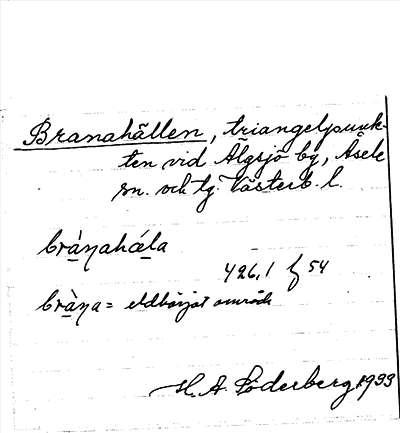 Branahällen, triangelpunk-
ten vid Älgsjö by, Åsele
sn. och tg. Västerb. l.
bràn̥ahála
426,1 54
bràn̥a = eldhärjat område
H. A. Söderberg 1933